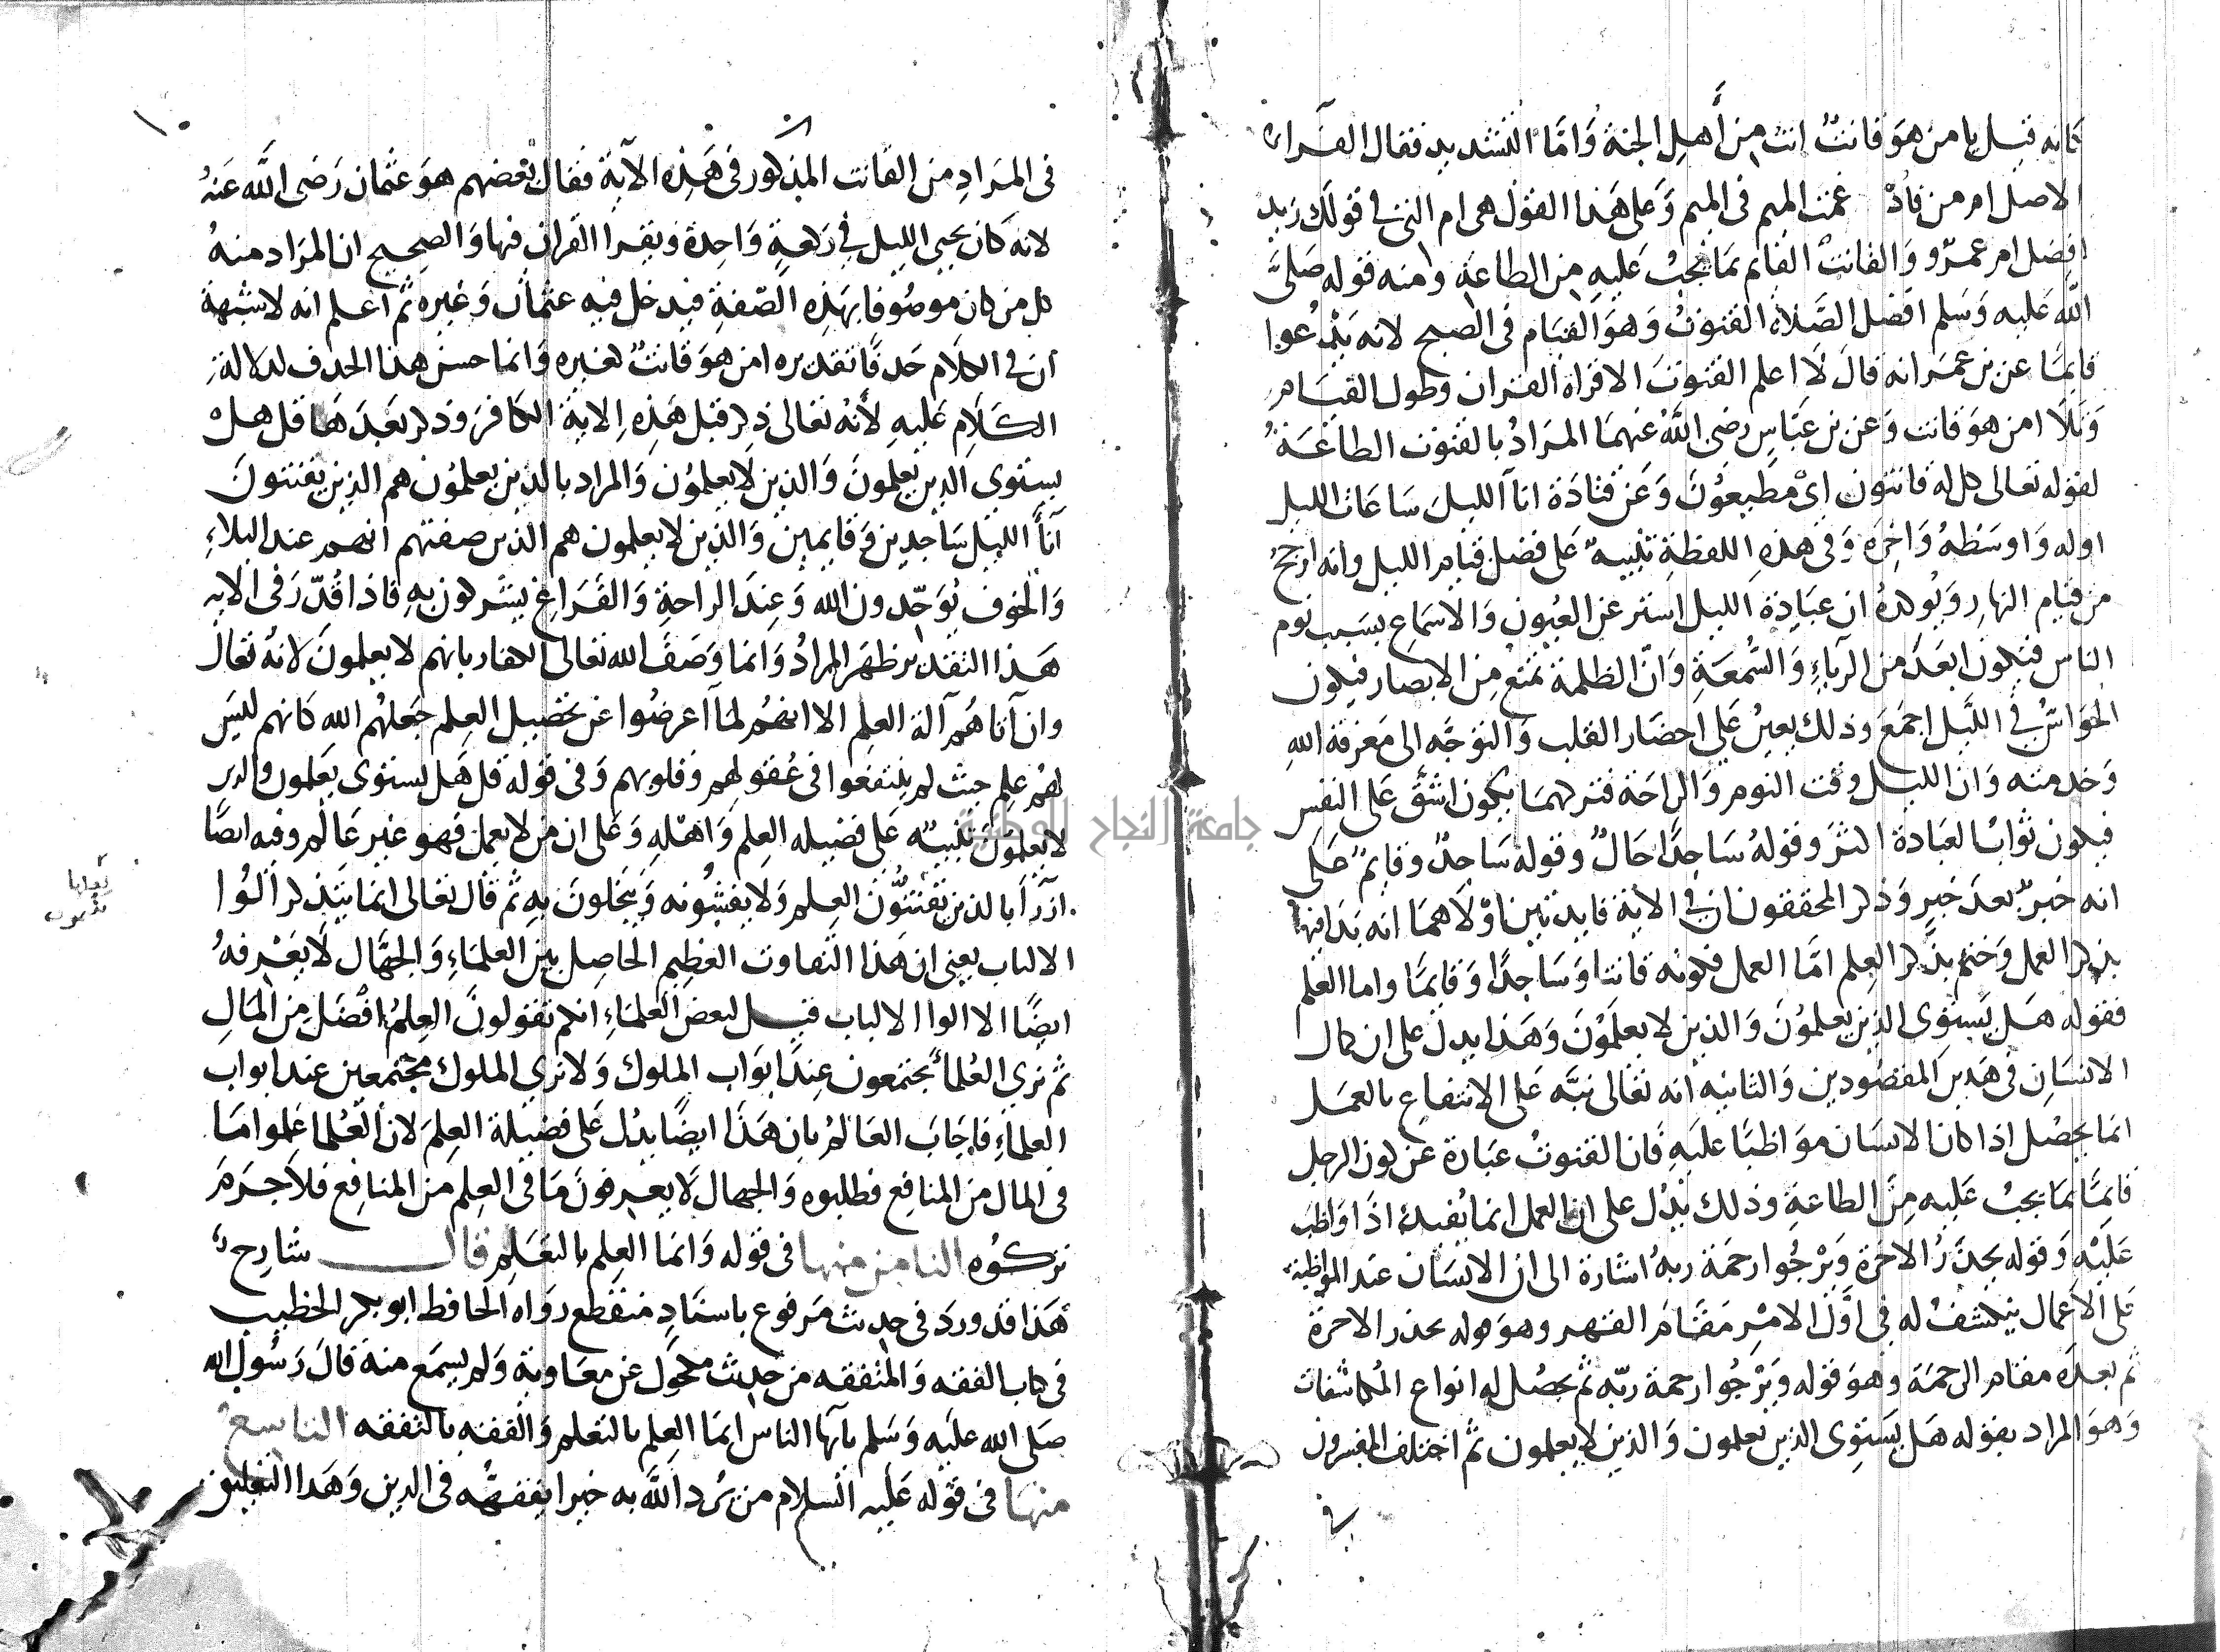 كانه قيل يا من هو قانت انت من أهل الجنة وَامّا التشديد فقال الفراء
الاصل ام من فاد غمت الميم فى الميم وَعلى هَذا القول هى ام التى في قولك زيد
افضل ام عمرو وَالقانت القايم بمَا يجبْ عَليهِ من الطاعَة ومنه قوله صَلى
الله عَليه وَسَلم افضل الصَّلاة القنوتُ وَهوَ القيَام فى الصبح لانه يَدْعوا
قايمًا عن بن عمَر انه قالَ لَا اعلم القنوتَ الا قراة القران وطول القيَام
وَتَلَا امن هوَ قانت وَعن بن عَبَّاس رضى اللَّهُ عَنهمَا المرَادُ بالقنوت الطاعَةُ
لقوله تعالى كل له قانتون اىْ مطيعُونَ وَعَن قتادَة انآ الليلَ سَاعَات الليل
اوله وَاوسَطهُ وَاخرَه وَفى هذهِ اللفظةِ تنبيهٌ عَلى فضل قيام الليل وانه ارجحُ
من قيام النهارِ وَيُوكدهُ ان عبَادة الليل استر عن العيون وَالاسمَاع بسَبب نوم
الناس فيكون ابعَدَ من الرياءِ وَالسُّمعَةِ وَانّ الظلمة تمنع مِن الابصار فيكون
الحَوَاسّ في اللَّيل اجمَعَ وذلك يعينُ عَلى احضَار القلب وَالتوَجّه الى مَعرفة اللهِ
وَحْد منه وَان الليل وقت النوم وَالراحَة فتركهمَا يكون اشقَّ عَلى النفس
فيكون ثوابُ العبَادة اكثرَ وَقولهُ سَاجدًا حَالٌ وقوله سَاجدٌ وقايمٌ عَلى
انه خبرٌ بعدَ خبرٍ وَذكر المحققون ان في الاية فايدتين اوْلَاهمَا انه بدَا فيها
بذكر العمل وَختم بذكر العلم امَّا العمل فكونه قانتا وَسَاجدًا وَقايمًا واما العلم
فقوله هَل يَستوى الذين يعلمُونَ وَالذين لا يعلمُوْنَ وَهَذا يدلّ على ان كمال
الانسَانِ فى هَذين المقصُودين وَالثانيه انه تعَالى نبَّه عَلى الانتفاع بالعمَل
انمَا يحصُل اذا كان الانسَان موَاظبًا عليَهِ فَان القنوتْ عبَارة عن كون الرجل
قايمًا بمَا يجبُ عَليه مِنَ الطاعَةِ وذلك يدُل على ان العمل انمَا يُفيد اذَا وَاظب
عَليْه وَقوله يحذرُ الاخرَة وَيَرْجُوا رحمَة ربهُ اشارة الى ان الانسَان عندَ المواظبة
عَلى الاعمال ينكشفُ له في اوَّلَ الامْرِ مَقَامَ القهر وهوَ قوله يحذر الاخرة
ثم بعدَه مقام الرحمَة وَهوَ قوله وَيَرْجُوا رحمة ربّه ثم يحصُل لهِ انواع المُكاشفات
وَهوَ المراد بقوله هَل يَستوِى الذين يعلمون وَالذين لا يعلمون ثم اختلف المفسرون
فى المرَادِ من القانت المذكور فى هَذه الآية فقالَ بَعضهم هوَ عثمان رَضى اللَّه عَنهُ
لانه كان يحيى الليل فى رَكعةٍ وَاحِدة وَيقرا القران فيها وَالصحيح ان المرَاد منهُ
كل من كان موصُوفا بهَذِه الصّفةِ فيدخل فيهِ عثمان وَغيره ثم اعلم انه لا شبهةَ
ان في الكلام حَدفًا تقديره امن هوَ قانتٌ كغيره وَانما حسن هذا الحدف لدلالةِ
الكلَامِ عَليهِ لأنهُ تعَالى ذكر قبل هَذِه الاية الكافرَ وذكر بَعدَهَا قل هل
يستوي الذين يعلمُونَ وَالذين لَا يعلمُون وَالمراد بالذين يعلمُون هم الذين يقنتونَ
آنآَ الليل سَاجدين وَقايمين وَالذين لا يعلمون هم الذين صفتهم انهم عند البلاءِ
وَالخوف يُوَحّدون الله وَعِندَ الراحةِ وَالفَرَاغ يشركون بهِ فاذا قُدّرَ فى الايه
هَذا التقدير ظهَر المرادُ وَانما وَصَفَ الله تعَالى الكفار بانهم لا يعلمونَ لانهُ تعَال
وان آتاهُم آلة العلم الا انهم لمَا اعرضُوا عن تحصيل العِلم جَعلهُم الله كَانهم ليسَ
لهُم علم حيث لم ينتفعوا فى عُقولهم وقلوبهم وَفى قوله قل هَل يستوى يَعلمون والذين
لا يَعلمُون تنبيه عَلى فضيله العِلم وَاهْلهِ وَعَلى ان من لا يعمل فهو غير عَالم وفيه ايضًا
ازرآَ بالذين يقتنُون العِلم وَلا يفشُونه وَيبخلونَ بهِ ثم قال تعَالى انمَا يتذكر اُلُوا
الالباب يعنى ان هَذا التفاوت العَظِيم الحاصِل بين العلمَاءِ وَالجهَّال لَا يعْرفهُ
ايضًا الا الوا الالباب قيل لبعض العُلماءِ انكم تقولون العِلمُ افضل مِن المَالِ
ثم نرى العُلمآ يجتمعون عِندَ ابَوَاب الملوك وَلا نرى الملوك مجتمعين عند ابواب
العلماءِ فاجَابَ العَالمُ بان هَذَا ايضًا يدُل عَلى فضيلة العِلمَ لان العُلما عَلموا مَا
فى المال من المنَافِع فطلبوه وَالجهال لَا يعرفونَ مَا فى العِلم من المنافِع فلاجرَمَ
تركوُه الثامن منها فى قوله وَانمَا العِلم بالتعَلم قال شارحٌ
هَذا قد وردَ فى حديث مَرفوع باسنَادٍ منقطع روَاه الحافظ ابو بكر الخطيب
فى كتاب الفقه وَالمتفقه من حديث مكحُول عن معَاوية وَلم يسمَع منه قالَ رَسُولُ الله
صَلى الله علَيه وَسَلم يآيها الناس انمَا العِلم بالتعَلم وَالفقه بالتفقه التاسعُ
منهَا فى قوله عَليه السلام من يُرد اللَّه به خيرا يفقههُ فى الدين وَهَذا التعليق
جامعة النجاح الوطنية